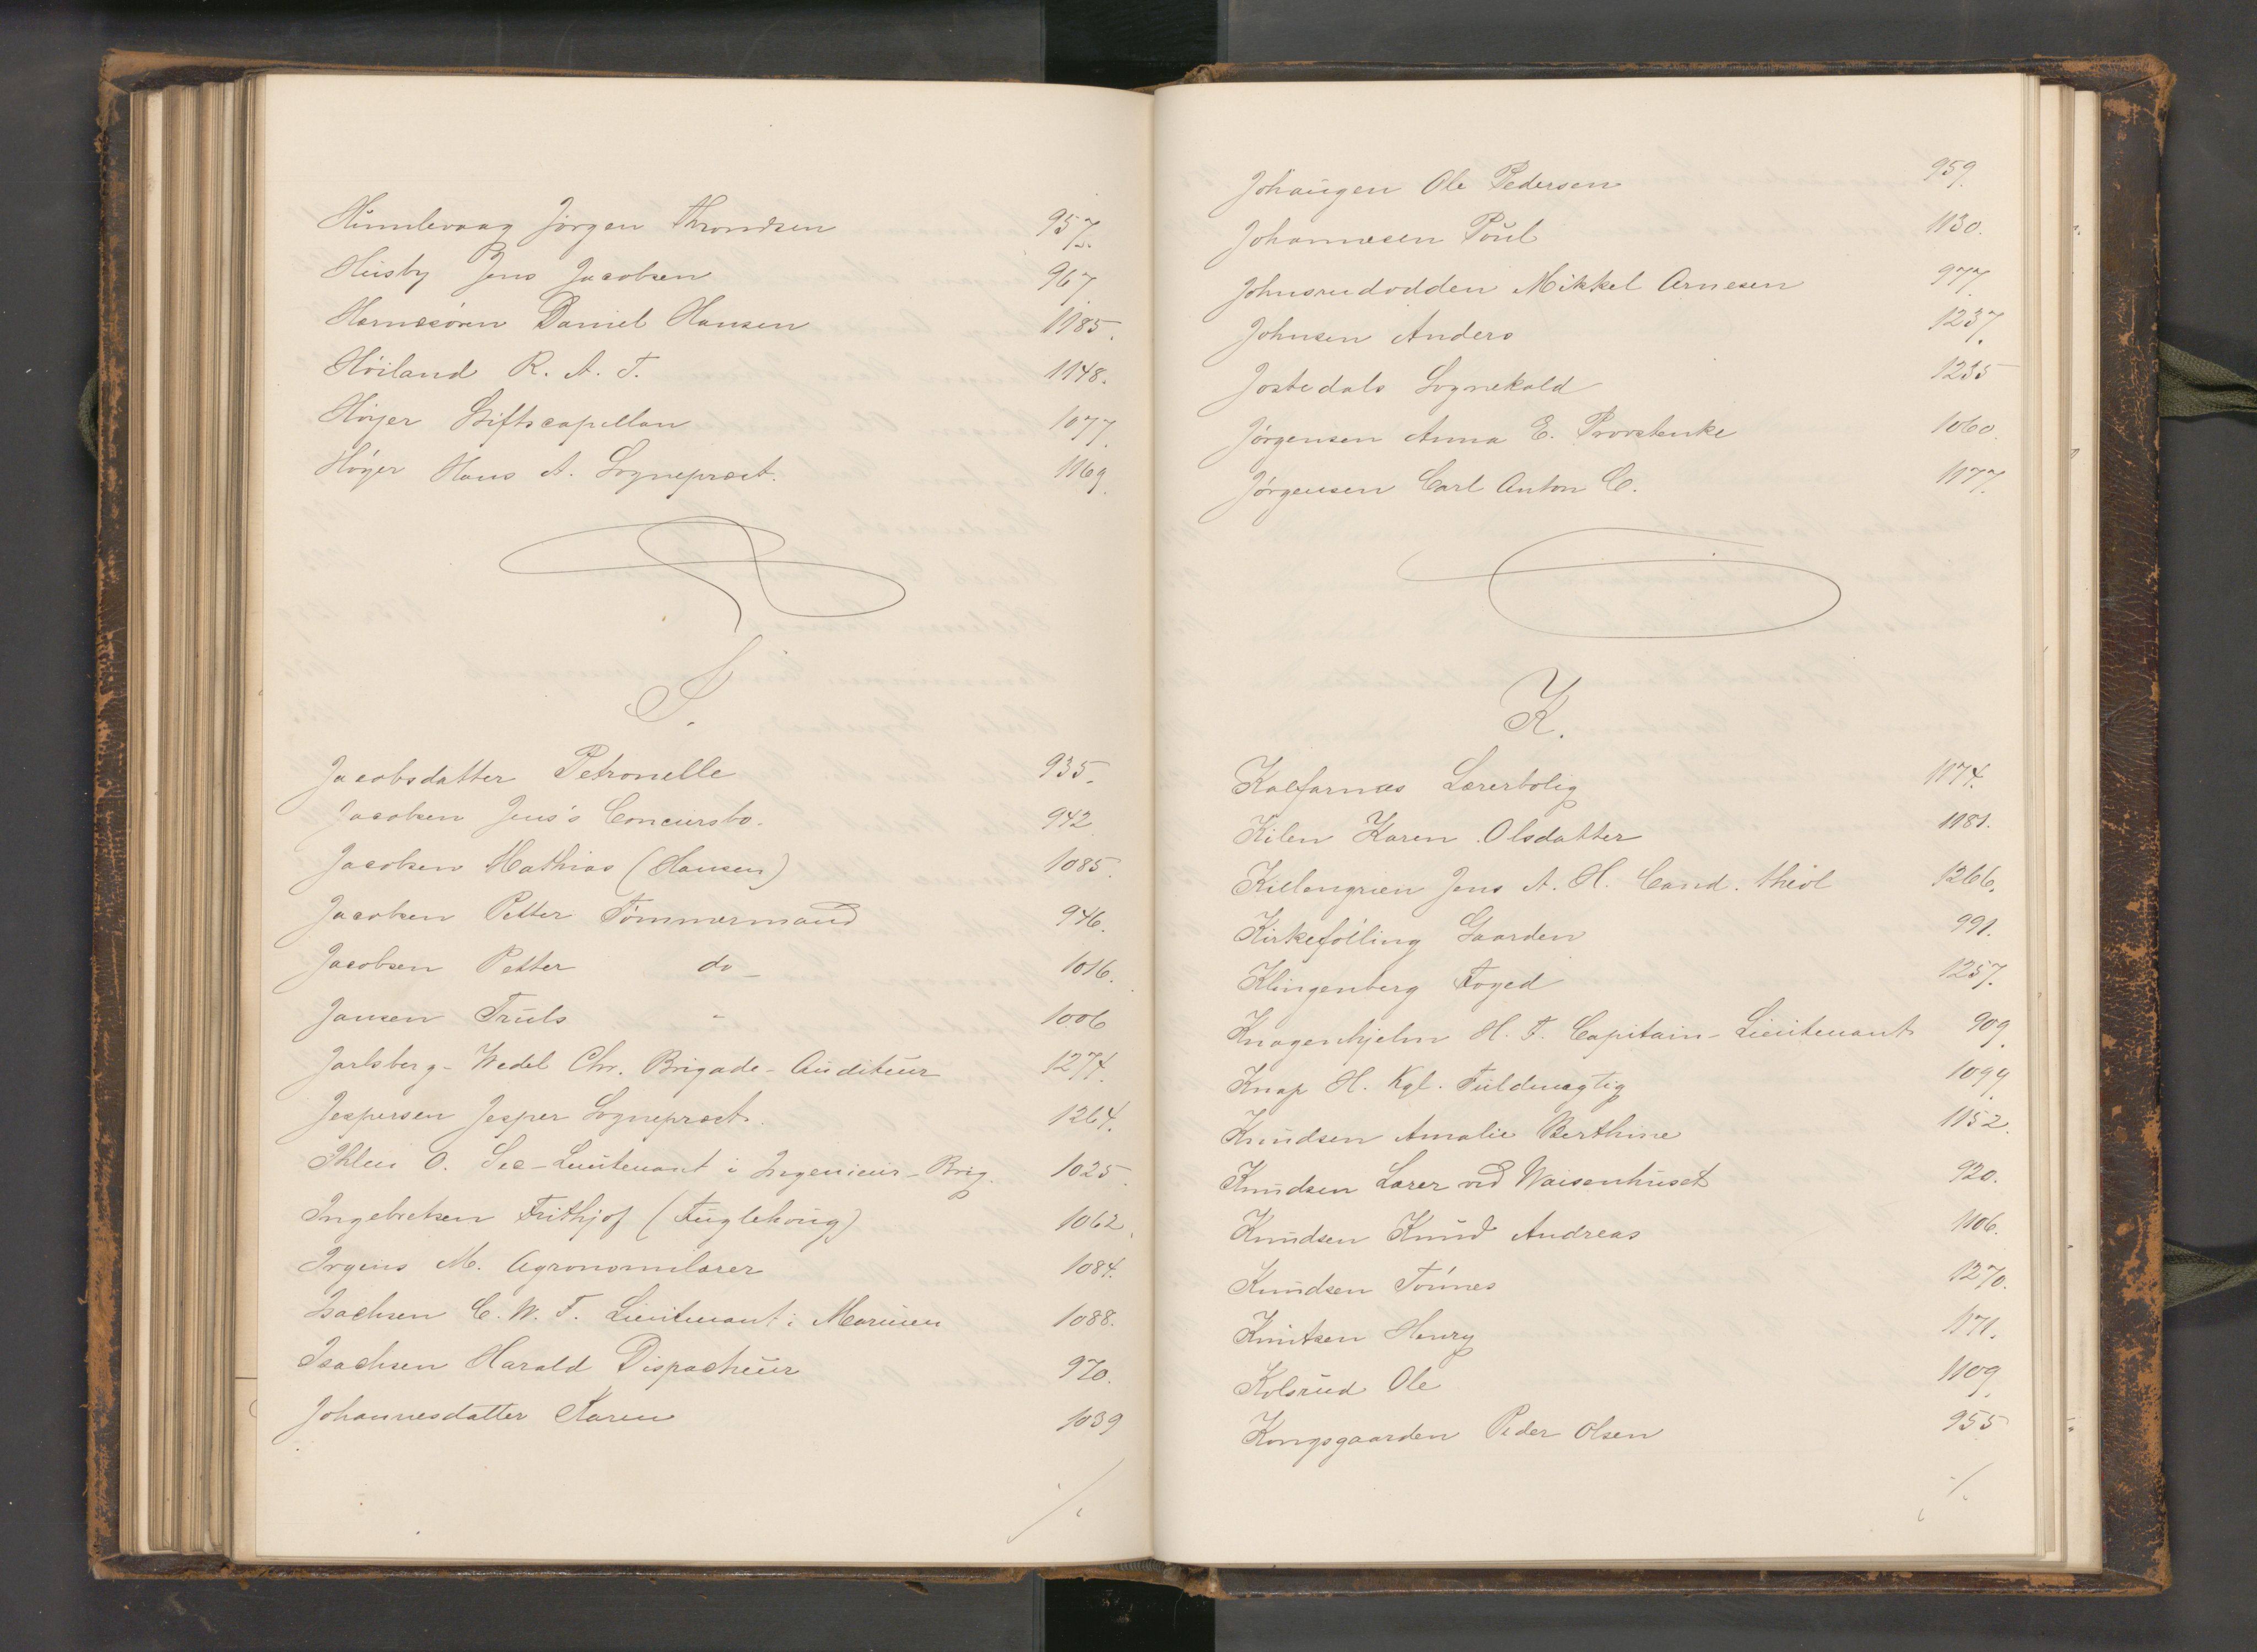 Humlevaag Jörgen Throndsen 957.
Huusby Jens Jacobsen 967
Hernesören Daniel Hansen 1185.
Höiland R. A. T. 1148.
Höyer Stiftscapellan 1077.
Höyer Hans A. Sogneprest. 1169.
J.
Jacobsdatter Petronelle 935.
Jacobsen Jens's Concursbo. 942
Jacobsen Mathias (Hansen) 1085.
Jacobsen Petter Tömmermand 946.
Jacobsen Petter do 1016.
Jansen Truls " 1006
Jarlsberg-Wedel Chr. Brigade-Auditeur 1274.
Jespersen Jesper Sogneprest. 1264.
Ihlen O. Sec-Lieutenant i Ingenieur-Brig. 1025.
Ingebretsen Frithjof (Fuglehoug) 1062.
Irgens M. Agronomilærer 1084.
Isachsen C. W. F. Lieutenant i Marinen 1088.
Isachsen Harald Dispacheur 970.
Johannesdatter Karen 1039
./.
Johaugen Ole Pedersen 959.
Johannesen Poul 1130.
Johnsrudodden Mikkel Arnesen 977.
Johnsen Anders 1237.
Jostedals Sognekald 1235
Jörgensen Anna E. Provstenke 1060.
Jörgensen Carl Anton C. 1177.
K.
Kalfarnæs Lærerbolig 1174.
Kilen Karen Olsdatter 1181.
Killengreen Jens A. H. Cand. theol 1266.
Kirkefölling Gaarden 991.
Klingenberg Foged 1257.
Knagenhjelm H. F. Capitain-Lieutenant 909.
Knap H. Kgl. Fuldmægtig 1099.
Knudsen Amalie Berthine 1152.
Knudsen Lærer ved Waisenhuset 920.
Knudsen Knud Andreas 1106.
Knudsen Tönnes 1270.
Knutsen Henry 1171.
Kolsrud Ole 1109.
Kongsgaarden Peder Olsen 955
./.